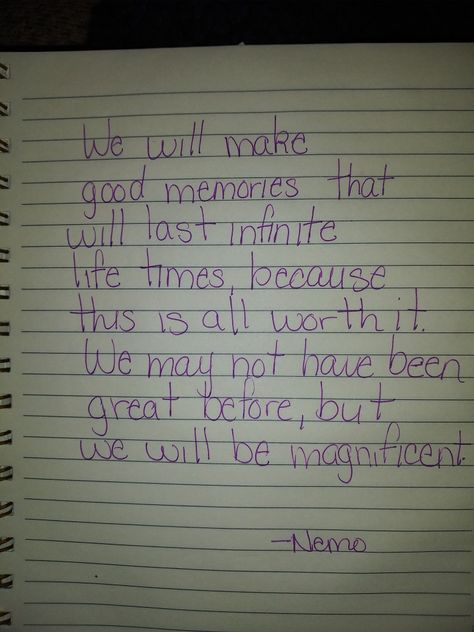 We will make
good memories that
will last infinite
life times, because
this is all worth it.
We may not have been
great before, but
we will be magnificent.
-Nemo